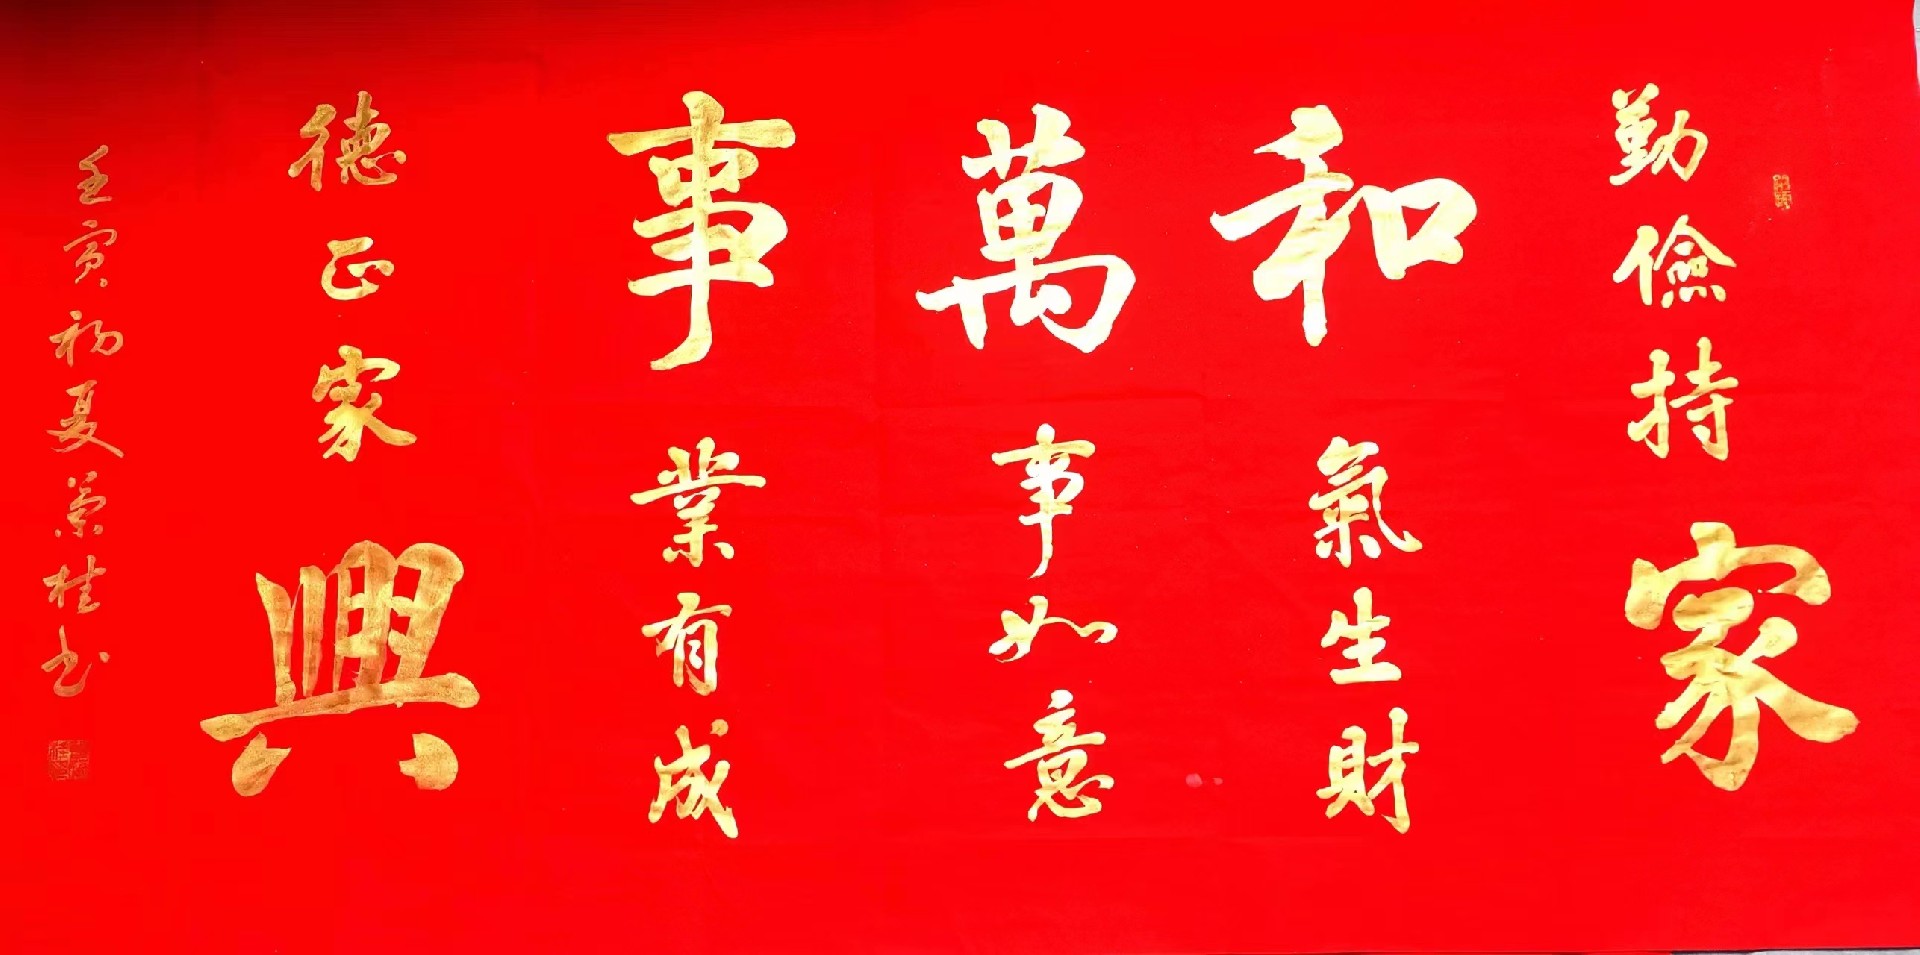 勤儉持家
和氣生財
萬事如意
事業有成
德正家興
壬寅初夏蘭桂书